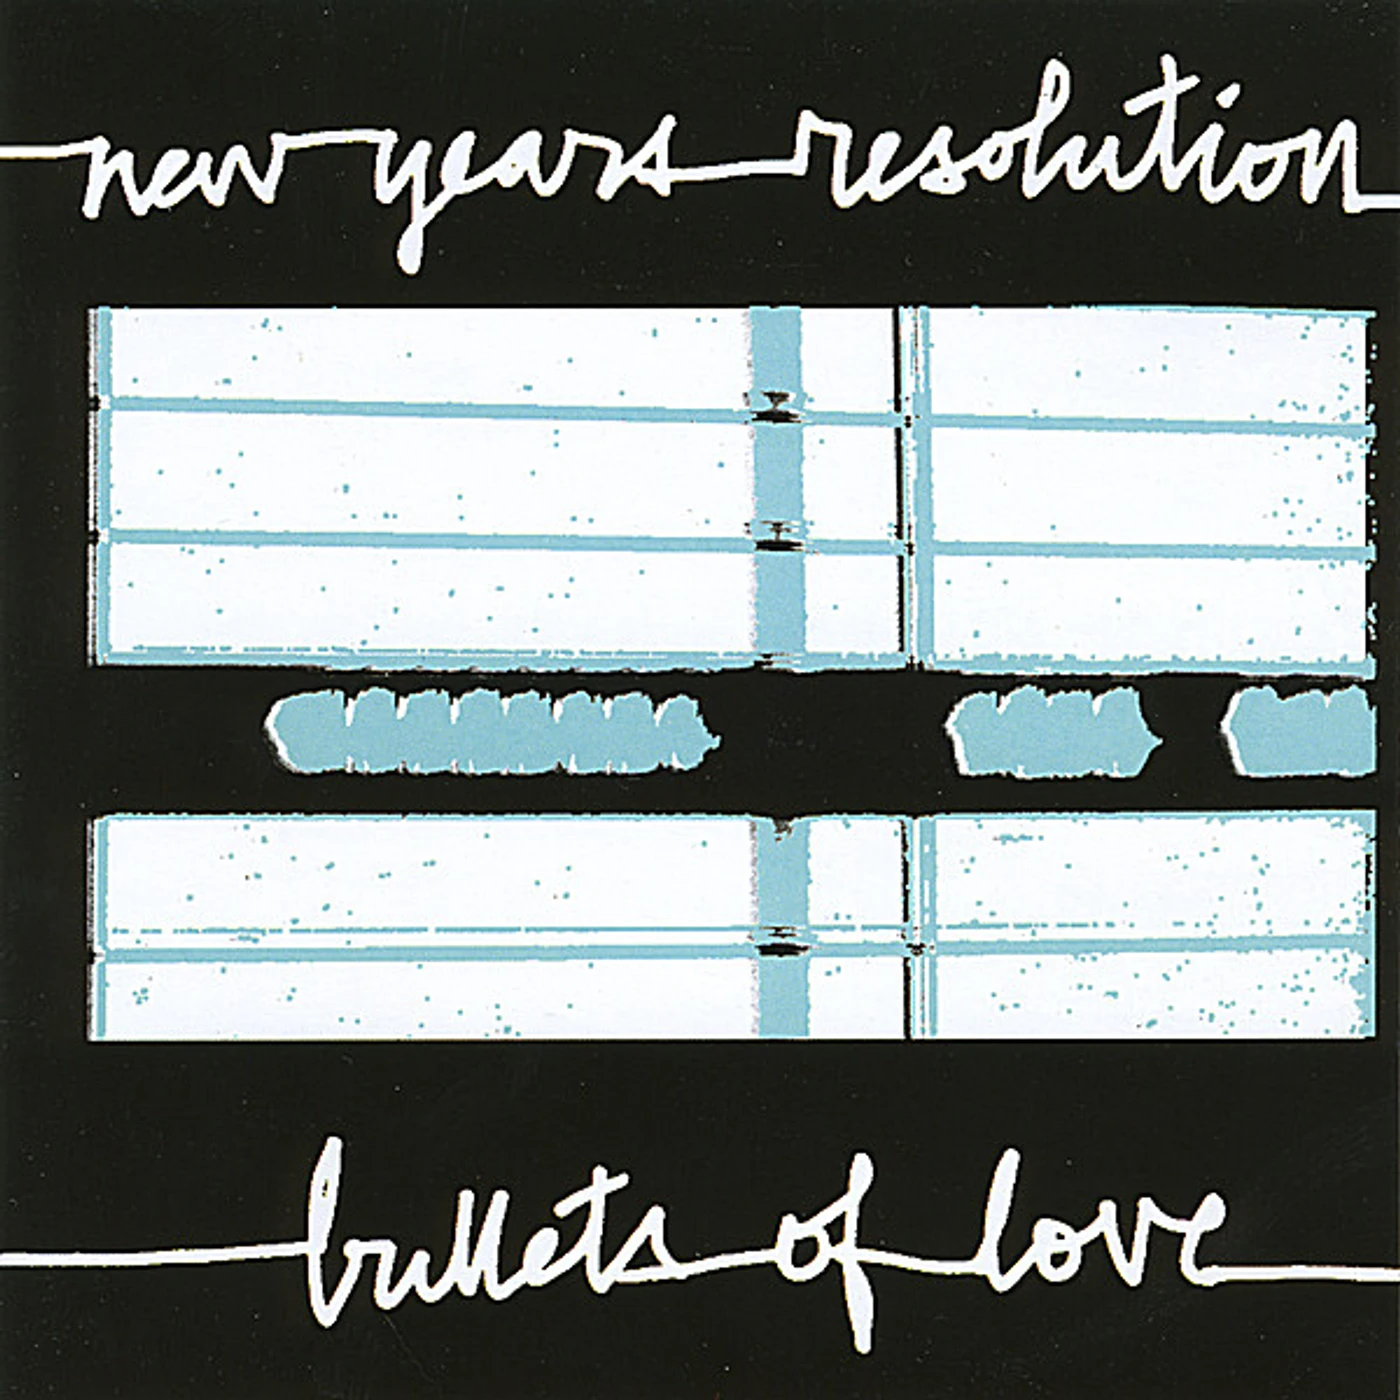 new years resolution
bullets of love